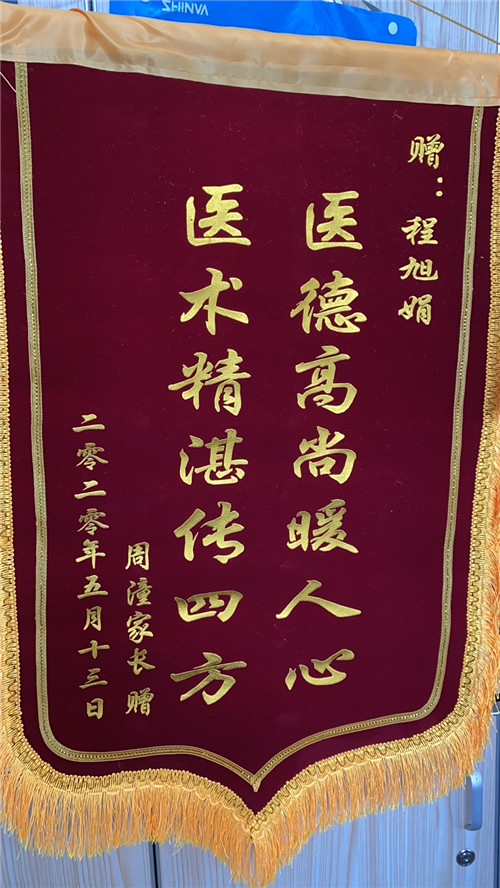 SHINVA
赠：程旭娟
医德高尚暖人心
医术精湛传四方
周潼家长 赠
二零二零年五月十三日